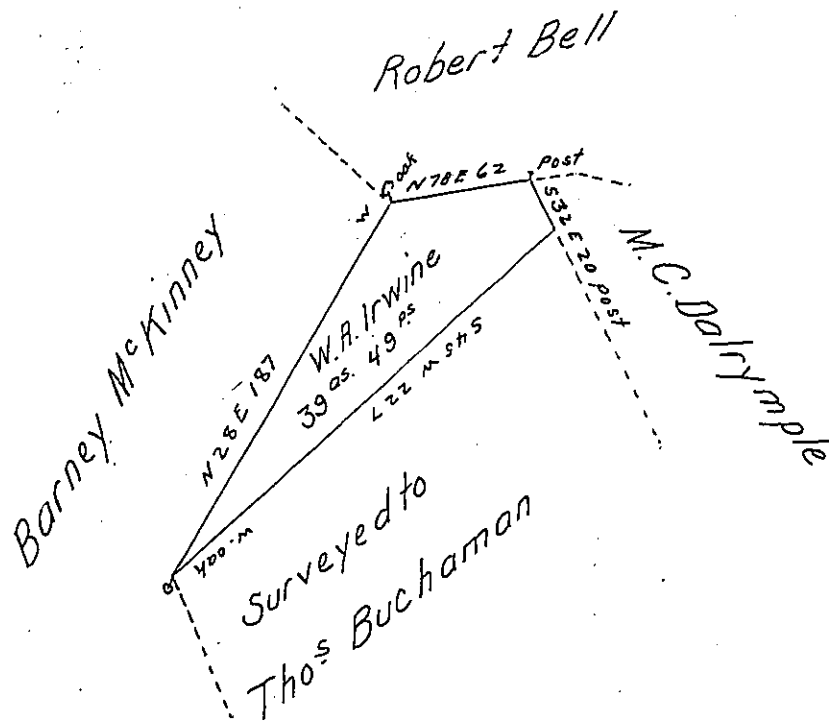 Robert Bell
W oak
N78E 62
Post
S32E20 post
M.C. Dalrymple
Barney McKinney
N28E 187
W.A. Irwine
39 as. 49 ps
S45 W 227
w-oak
Surveyed to
Thos Buchaman